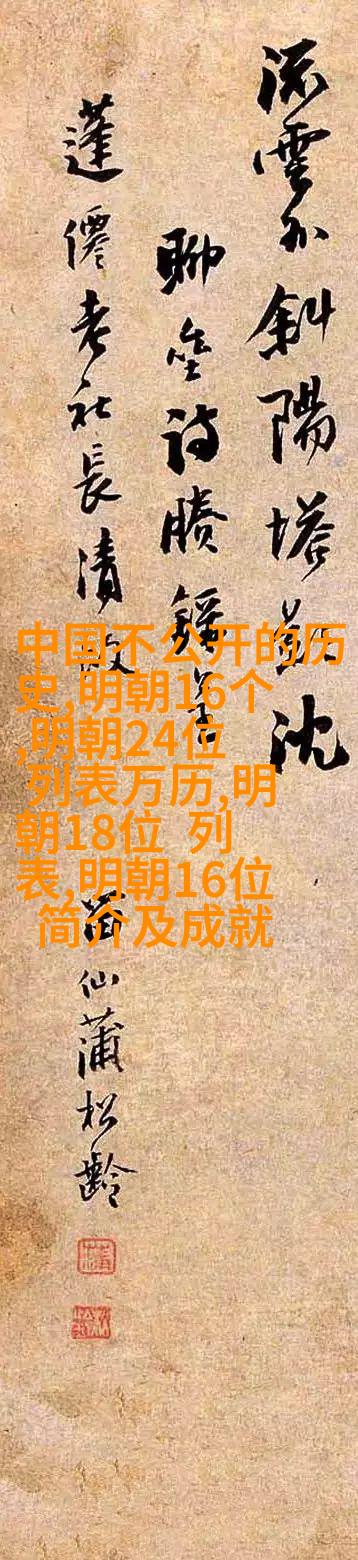 流雲外斜陽塔影沈
聊詩
蓬僊老社長清
留仙蒲松齡
中国不公开的历
史,明朝16个
,明朝24位
列表万历,明
朝18位 列
表,明朝16位
简介及成就